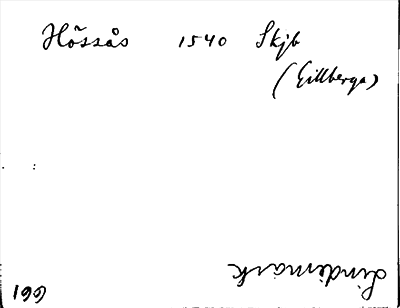 Hössås 1540 Skjb
(Gillberga)
Lindemark
199